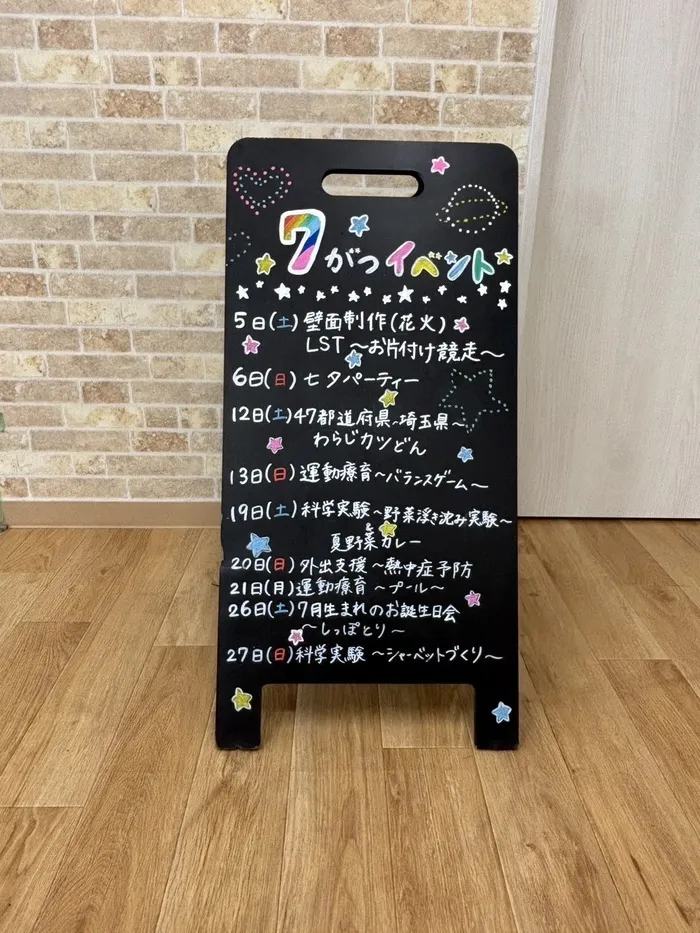 7がつイベント
5日(土)壁面制作(花火)
LST～お片付け競走～
6日(日)七夕パーティー
12日(土)47都道府県～埼玉県～
わらじカツどん
13日(日)運動療育～バランスゲーム～
19日(土)科学実験～野菜浮き沈み実験～
&
夏野菜カレー
20日(日)外出支援～熱中症予防
21日(月)運動療育～プール～
26日(土)7月生まれのお誕生日会
～しっぽとり～
27日(日)科学実験～シャーベットづくり～